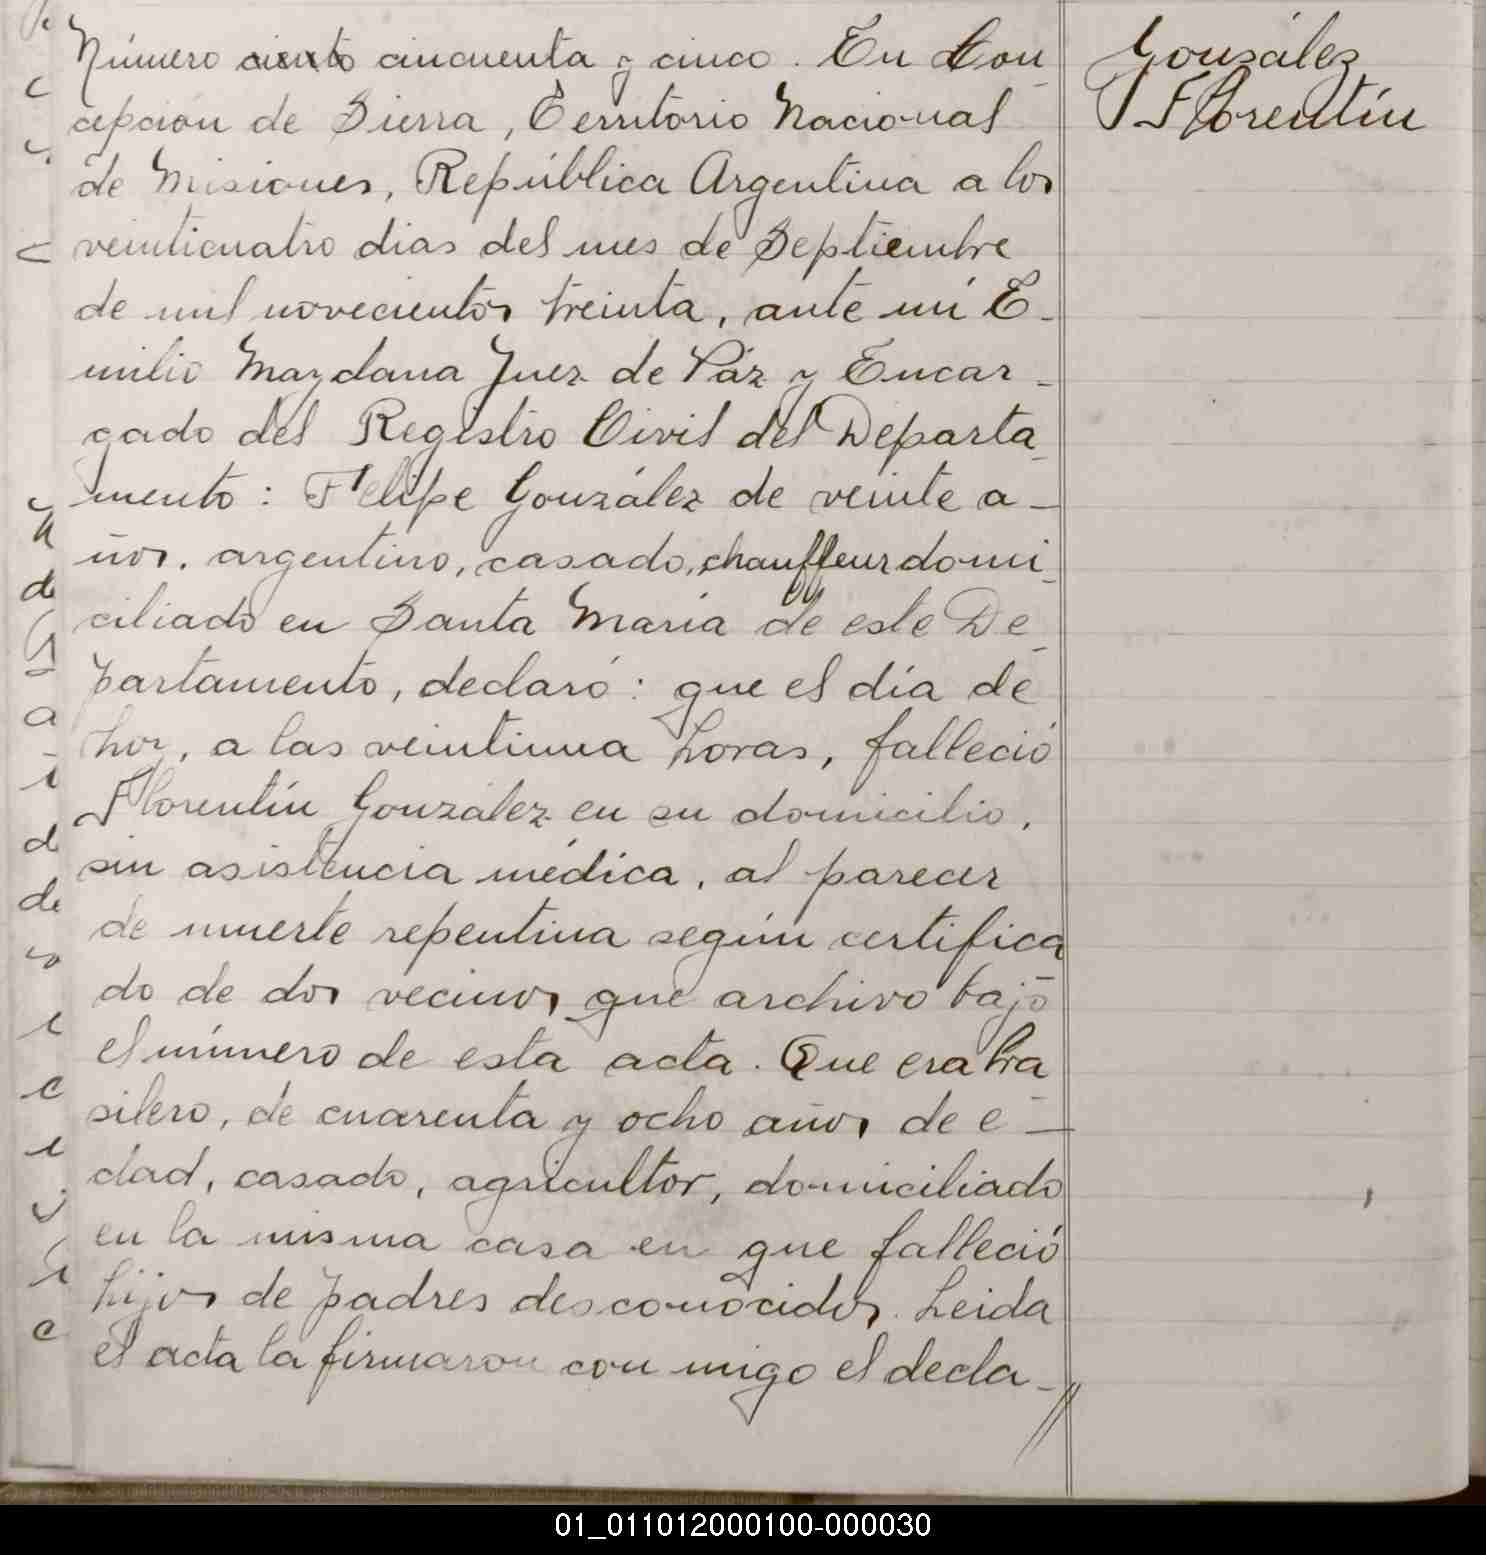 Número ciento cincuenta y cinco. En Con-
cepción de Sierra, Territorio Nacional
de Misiones, República Argentina a los
veinticuatro dias del mes de Septiembre
de mil novecientos treinta, ante mí E-
milio Maydana Juez de Páz y Encar-
gado del Registro Civil del Departa-
mento: Felipe González de veinte a-
ños, argentino, casado, chauffeur domi-
ciliado en Santa María de este De-
partamento, declaró: que el día de
hoy, a las veintiuna horas, falleció
Florentín González en su domicilio,
sin asistencia médica, al parecer
de muerte repentina según certifica
do de dos vecinos que archivo bajo
el número de esta acta. Que era bra-
silero, de cuarenta y ocho años de e-
dad, casado, agricultor, domiciliado
en la misma casa en que falleció
hijos de padres desconocidos. Leida
el acta la firmaron con migo el decla-//
González
Florentín
01_011012000100-000030